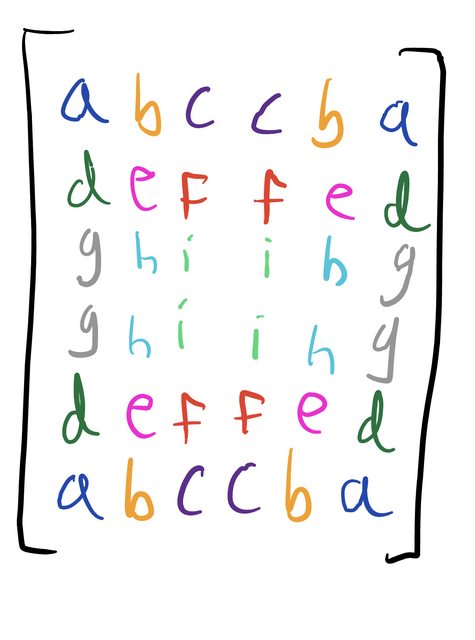 a b c c b a
d e f f e d
g h i i h g
g h i i h g
d e f f e d
a b c c b a